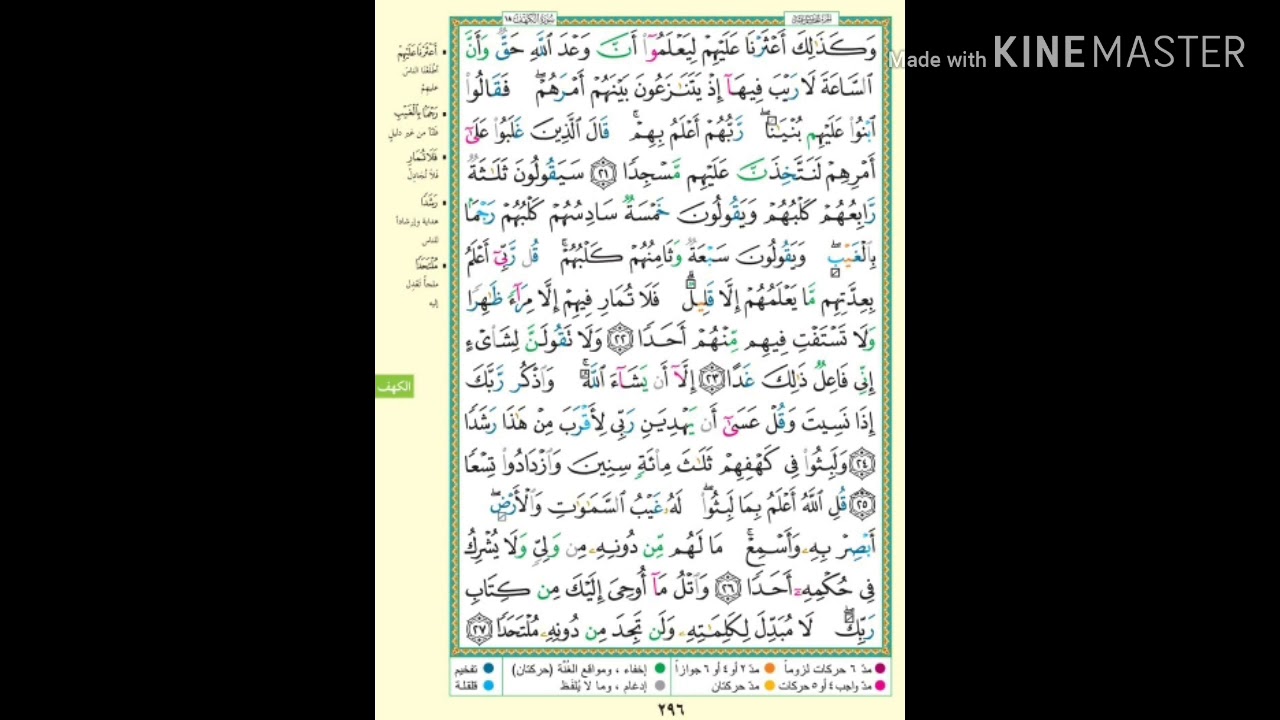 سُورَةُ الكَهْفِ ١٨
وَكَذَٰلِكَ أَعْثَرْنَا عَلَيْهِمْ لِيَعْلَمُوٓا۟ أَنَّ وَعْدَ ٱللَّهِ حَقٌّ وَأَنَّ
ٱلسَّاعَةَ لَا رَيْبَ فِيهَآ إِذْ يَتَنَٰزَعُونَ بَيْنَهُمْ أَمْرَهُمْ ۖ فَقَالُوا۟
ٱبْنُوا۟ عَلَيْهِم بُنْيَٰنًا ۖ رَّبُّهُمْ أَعْلَمُ بِهِمْ ۚ قَالَ ٱلَّذِينَ غَلَبُوا۟ عَلَىٰٓ
أَمْرِهِمْ لَنَتَّخِذَنَّ عَلَيْهِم مَّسْجِدًا ٢١ سَيَقُولُونَ ثَلَٰثَةٌ
رَّابِعُهُمْ كَلْبُهُمْ وَيَقُولُونَ خَمْسَةٌ سَادِسُهُمْ كَلْبُهُمْ رَجْمًۢا
بِٱلْغَيْبِ ۖ وَيَقُولُونَ سَبْعَةٌ وَثَامِنُهُمْ كَلْبُهُمْ ۚ قُل رَّبِّىٓ أَعْلَمُ
بِعِدَّتِهِم مَّا يَعْلَمُهُمْ إِلَّا قَلِيلٌ ۗ فَلَا تُمَارِ فِيهِمْ إِلَّا مِرَآءً ظَٰهِرًا
وَلَا تَسْتَفْتِ فِيهِم مِّنْهُمْ أَحَدًا ٢٢ وَلَا تَقُولَنَّ لِشَا۟ىْءٍ
إِنِّى فَاعِلٌ ذَٰلِكَ غَدًا ٢٣ إِلَّآ أَن يَشَآءَ ٱللَّهُ ۚ وَٱذْكُر رَّبَّكَ
إِذَا نَسِيتَ وَقُلْ عَسَىٰٓ أَن يَهْدِيَنِ رَبِّى لِأَقْرَبَ مِنْ هَٰذَا رَشَدًا
٢٤ وَلَبِثُوا۟ فِى كَهْفِهِمْ ثَلَٰثَ مِا۟ئَةٍ سِنِينَ وَٱزْدَادُوا۟ تِسْعًا
٢٥ قُلِ ٱللَّهُ أَعْلَمُ بِمَا لَبِثُوا۟ ۖ لَهُۥ غَيْبُ ٱلسَّمَٰوَٰتِ وَٱلْأَرْضِ ۖ
أَبْصِرْ بِهِۦ وَأَسْمِعْ ۚ مَا لَهُم مِّن دُونِهِۦ مِن وَلِىٍّ وَلَا يُشْرِكُ
فِى حُكْمِهِۦٓ أَحَدًا ٢٦ وَٱتْلُ مَآ أُوحِىَ إِلَيْكَ مِن كِتَابِ
رَبِّكَ ۖ لَا مُبَدِّلَ لِكَلِمَٰتِهِۦ وَلَن تَجِدَ مِن دُونِهِۦ مُلْتَحَدًا ٢٧
أَعْثَرْنَا عَلَيْهِمْ
أطْلَعْنَا النَّاسَ
عليهِمْ
رَجْمًا بِالْغَيْبِ
ظَنًّا من غير دليلٍ
فَلَا تُمَارِ
فَلَا تُجَادِلْ
رَشَدًا
هدايةً وإرشاداً
للناس
مُلْتَحَدًا
ملجأً تَعْدِل
إليه
الكهف
مدّ ٦ حركات لزوماً مدّ ٢ أو ٤ أو ٦ جوازاً إخفاء ، ومواقع الغُنَّة (حركتان) تفخيم
مدّ واجب ٤ أو ٥ حركات مدّ حركتان إدغام ، وما لا يُلفَظ قلقلة
٢٩٦
Made with KINEMASTER